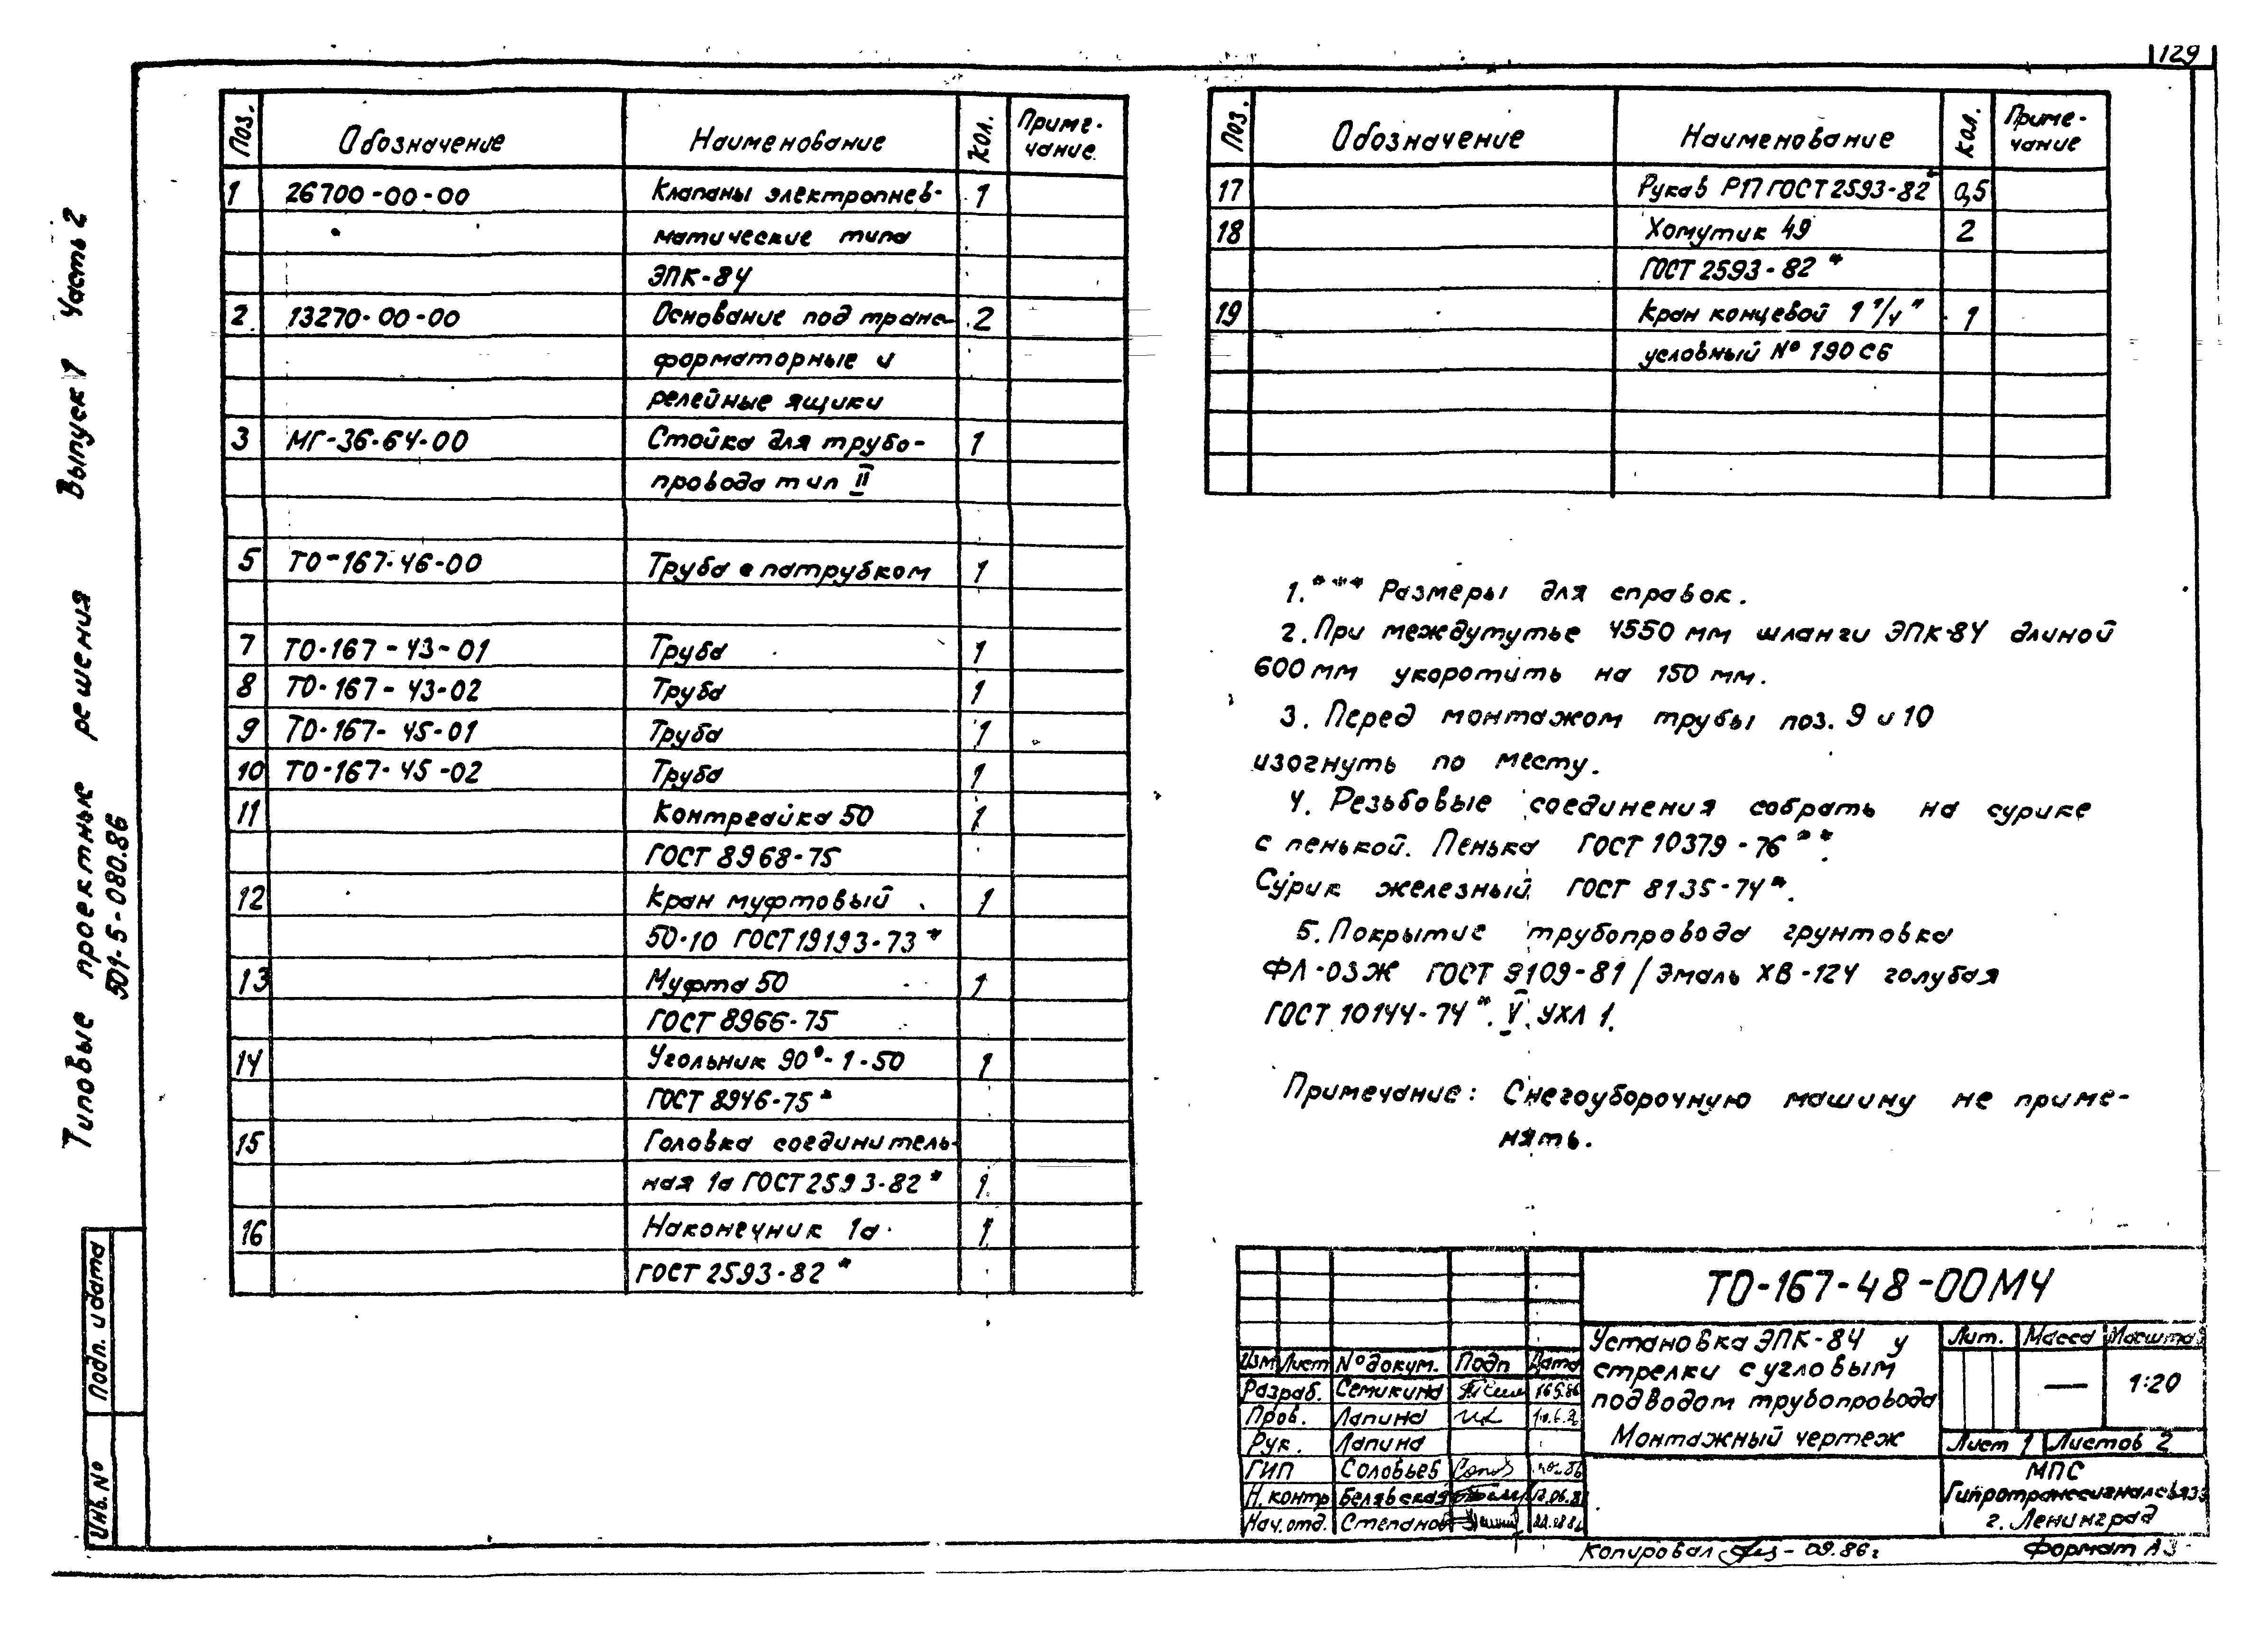 129
Типовые проектные решения Выпуск 1 Часть 2
501-5-080.86
Поз. Обозначение Наименование Кол. Приме-
чание
1 26700-00-00 Клапаны электропнев- 1
матические типа
ЭПК-84
2 13270-00-00 Основание под транс- 2
форматорные и
релейные ящики
3 МГ-36-64-00 Стойка для трубо- 1
провода тип II
5 ТО-167-46-00 Труба с патрубком 1
7 ТО-167-43-01 Труба 1
8 ТО-167-43-02 Труба 1
9 ТО-167-45-01 Труба 1
10 ТО-167-45-02 Труба 1
11 Контргайка 50 1
ГОСТ 8968-75
12 Кран муфтовый 1
50-10 ГОСТ 19193-73*
13 Муфта 50 1
ГОСТ 8966-75
14 Угольник 90°-1-50 1
ГОСТ 8946-75*
15 Головка соединитель-
ная 1а ГОСТ 2593-82* 1
16 Наконечник 1а 1
ГОСТ 2593-82*
Поз. Обозначение Наименование Кол. Приме-
чание
17 Рукав Р17 ГОСТ 2593-82* 0,5
18 Хомутик 49 2
ГОСТ 2593-82*
19 Кран концевой 1 1/4" 1
условный № 190 сб
1.*** Размеры для справок.
2. При междупутье 4550 мм шланги ЭПК-84 длиной
600 мм укоротить на 150 мм.
3. Перед монтажом трубы поз. 9 и 10
изогнуть по месту.
4. Резьбовые соединения собрать на сурике
с пенькой. Пенька ГОСТ 10379-76**.
Сурик железный ГОСТ 8135-74*.
5. Покрытие трубопровода грунтовка
ФЛ-03Ж ГОСТ 9109-81 / Эмаль ХВ-124 голубая
ГОСТ 10144-74*. V. УХЛ 1.
Примечание: Снегоуборочную машину не приме-
нять.
ТО-167-48-00МЧ
Установка ЭПК-84 у
стрелки с угловым
подводом трубопровода
Монтажный чертеж
Лит. Масса Масштаб
— 1:20
Лист 1 Листов 2
МПС
Гипротранссигналсвязь
г. Ленинград
Изм Лист № докум. Подп Дата
Разраб. Семикина
Пров. Лапина
Рук. Лапина
ГИП Соловьев
Н. контр Белявская
Нач. отд. Степанов
Подп. и дата
Инв. №
Копировал 09.86г
Формат А3